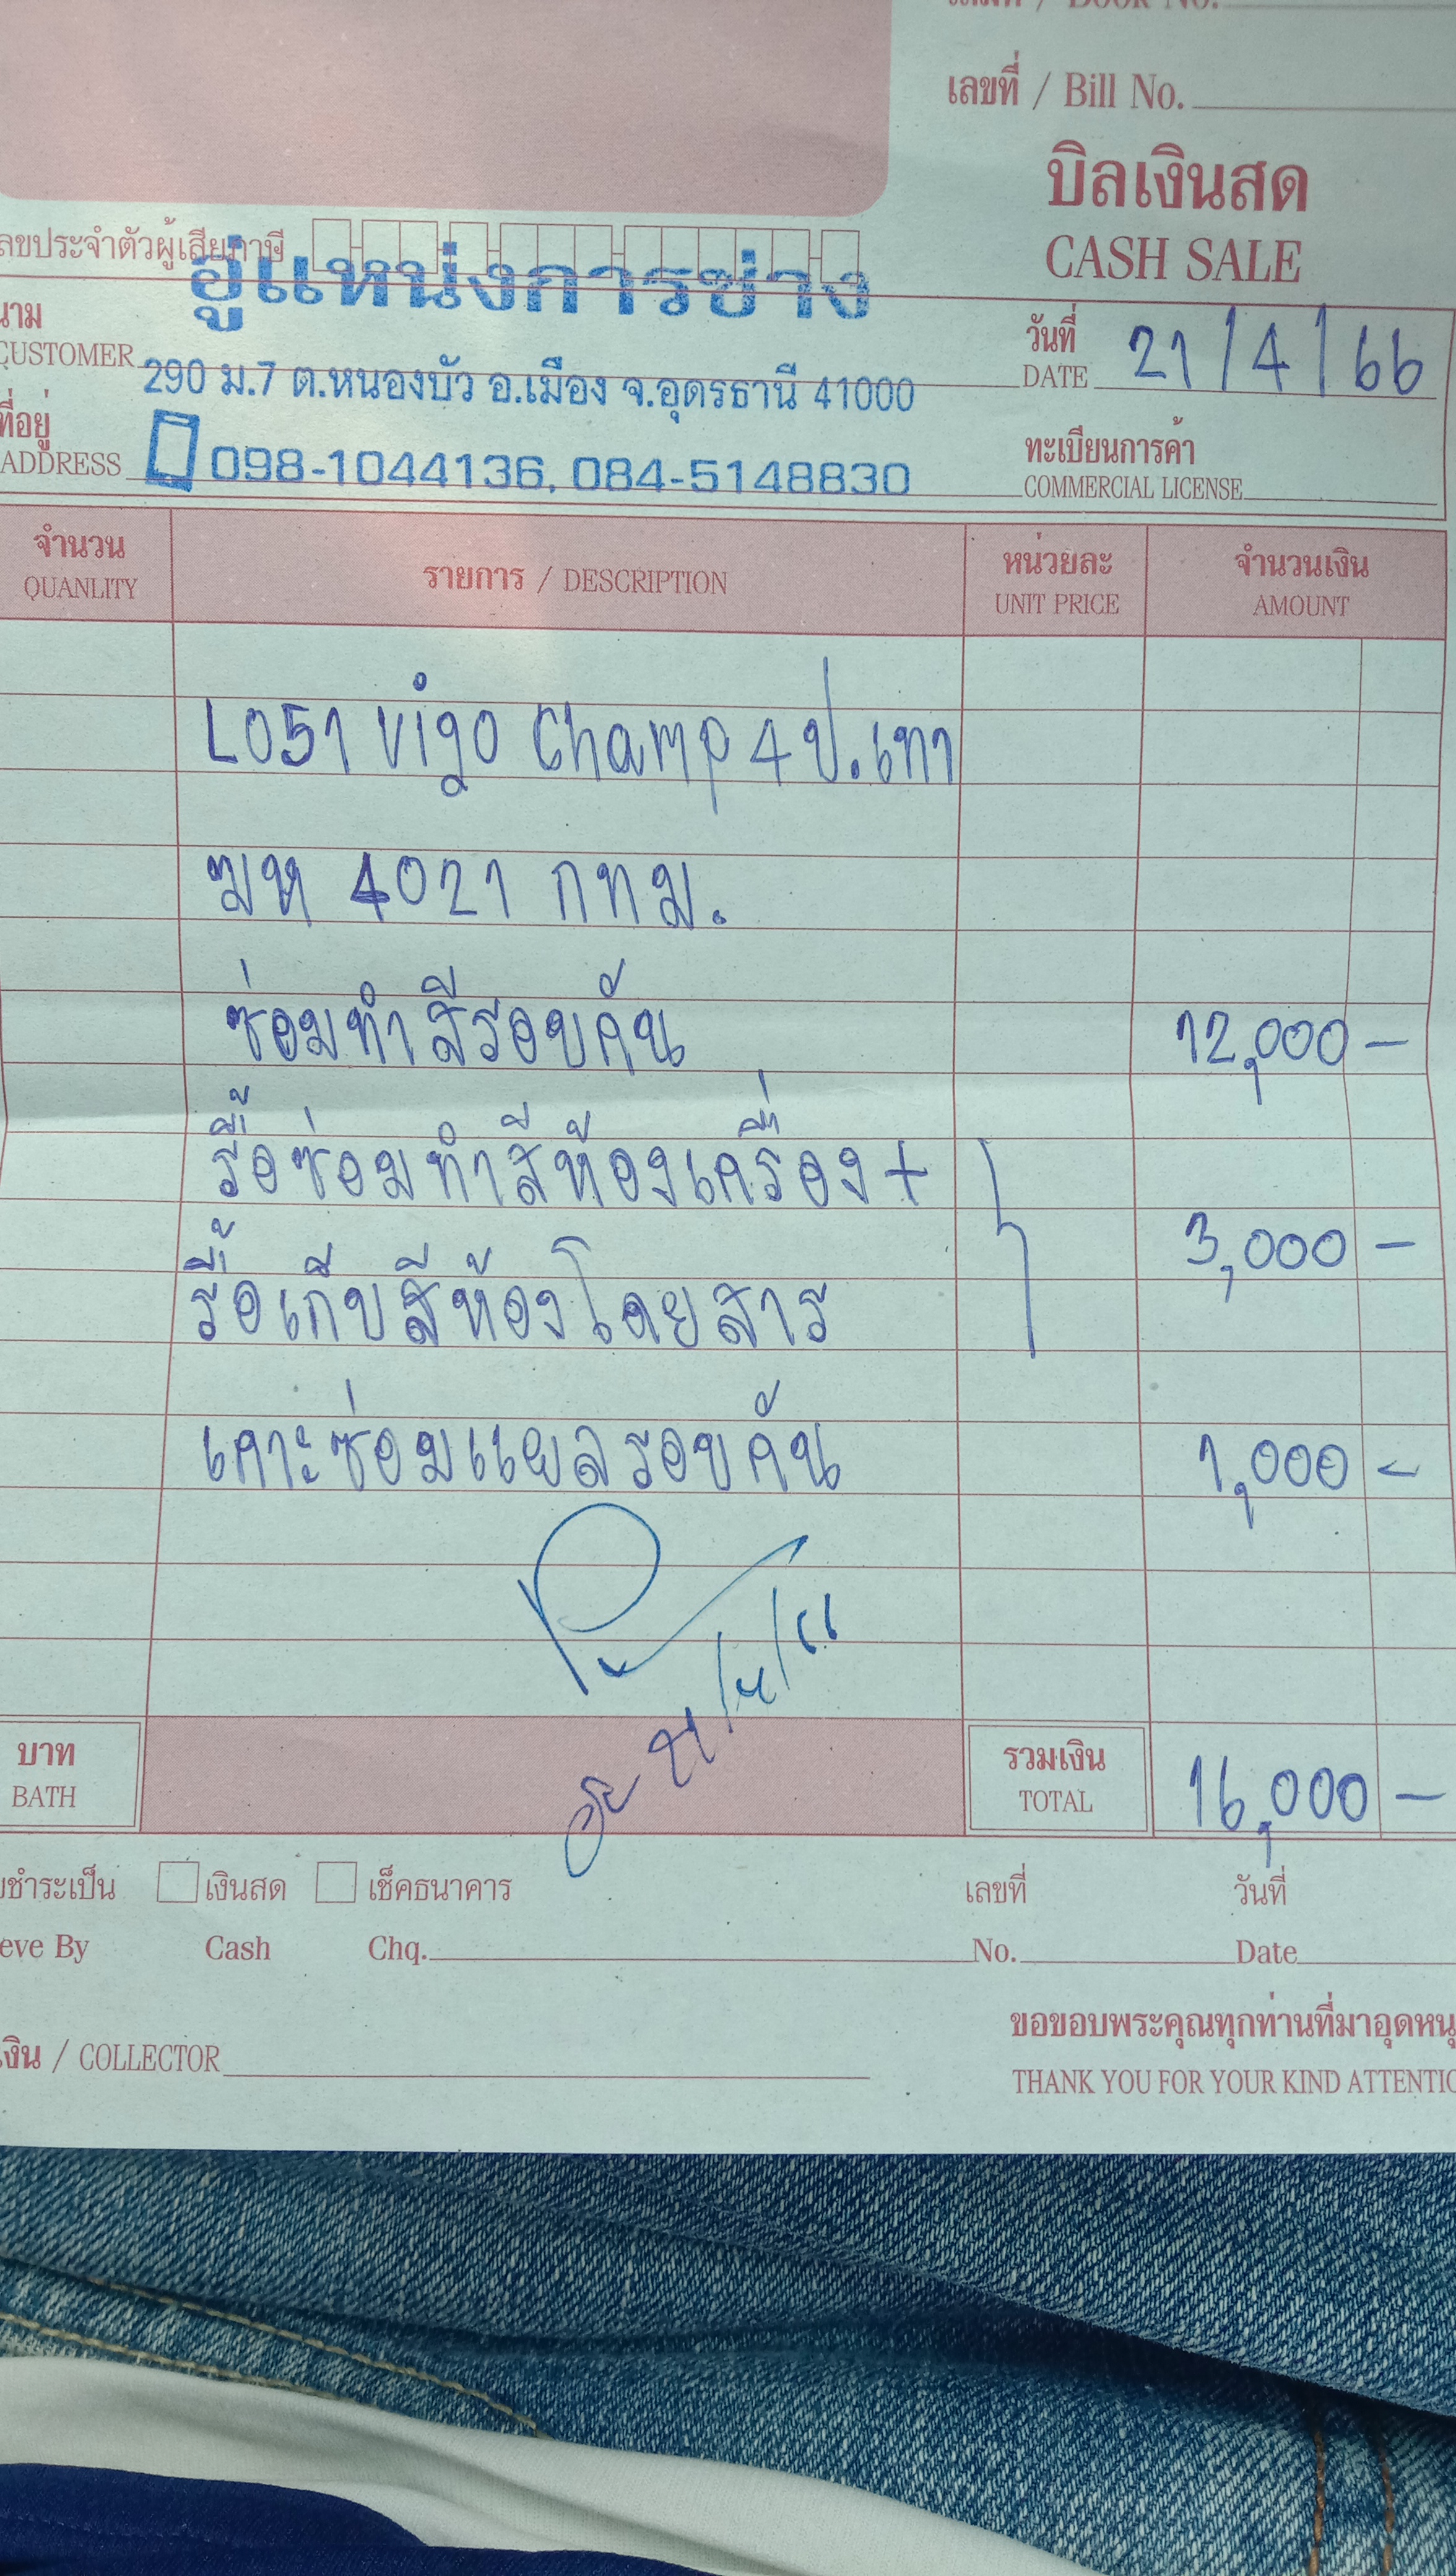 เลขที่ / Bill No.
บิลเงินสด
CASH SALE
ลขประจำตัวผู้เสียภาษี
อู่แหน่งการช่าง
นาม
CUSTOMER
290 ม.7 ต.หนองบัว อ.เมือง จ.อุดรธานี 41000
วันที่
DATE 21/4/66
ที่อยู่
ADDRESS
098-1044136, 084-5148830
ทะเบียนการค้า
COMMERCIAL LICENSE
จำนวน รายการ / DESCRIPTION หน่วยละ จำนวนเงิน
QUANLITY UNIT PRICE AMOUNT
L051 Vigo Champ 4 ป. เทา
ฆห 4021 กทม.
ซ่อมทำสีรอบคัน 12,000 -
รื้อซ่อมทำสีห้องเครื่อง +
3,000 -
รื้อเก็บสีห้องโดยสาร
เคาะซ่อมแผลรอบคัน 1,000 -
บาท รวมเงิน 16,000 -
BATH TOTAL
ชำระเป็น เงินสด เช็คธนาคาร เลขที่ วันที่
eve By Cash Chq. No. Date
ขอขอบพระคุณทุกท่านที่มาอุดหนุ
งิน / COLLECTOR
THANK YOU FOR YOUR KIND ATTENTIO